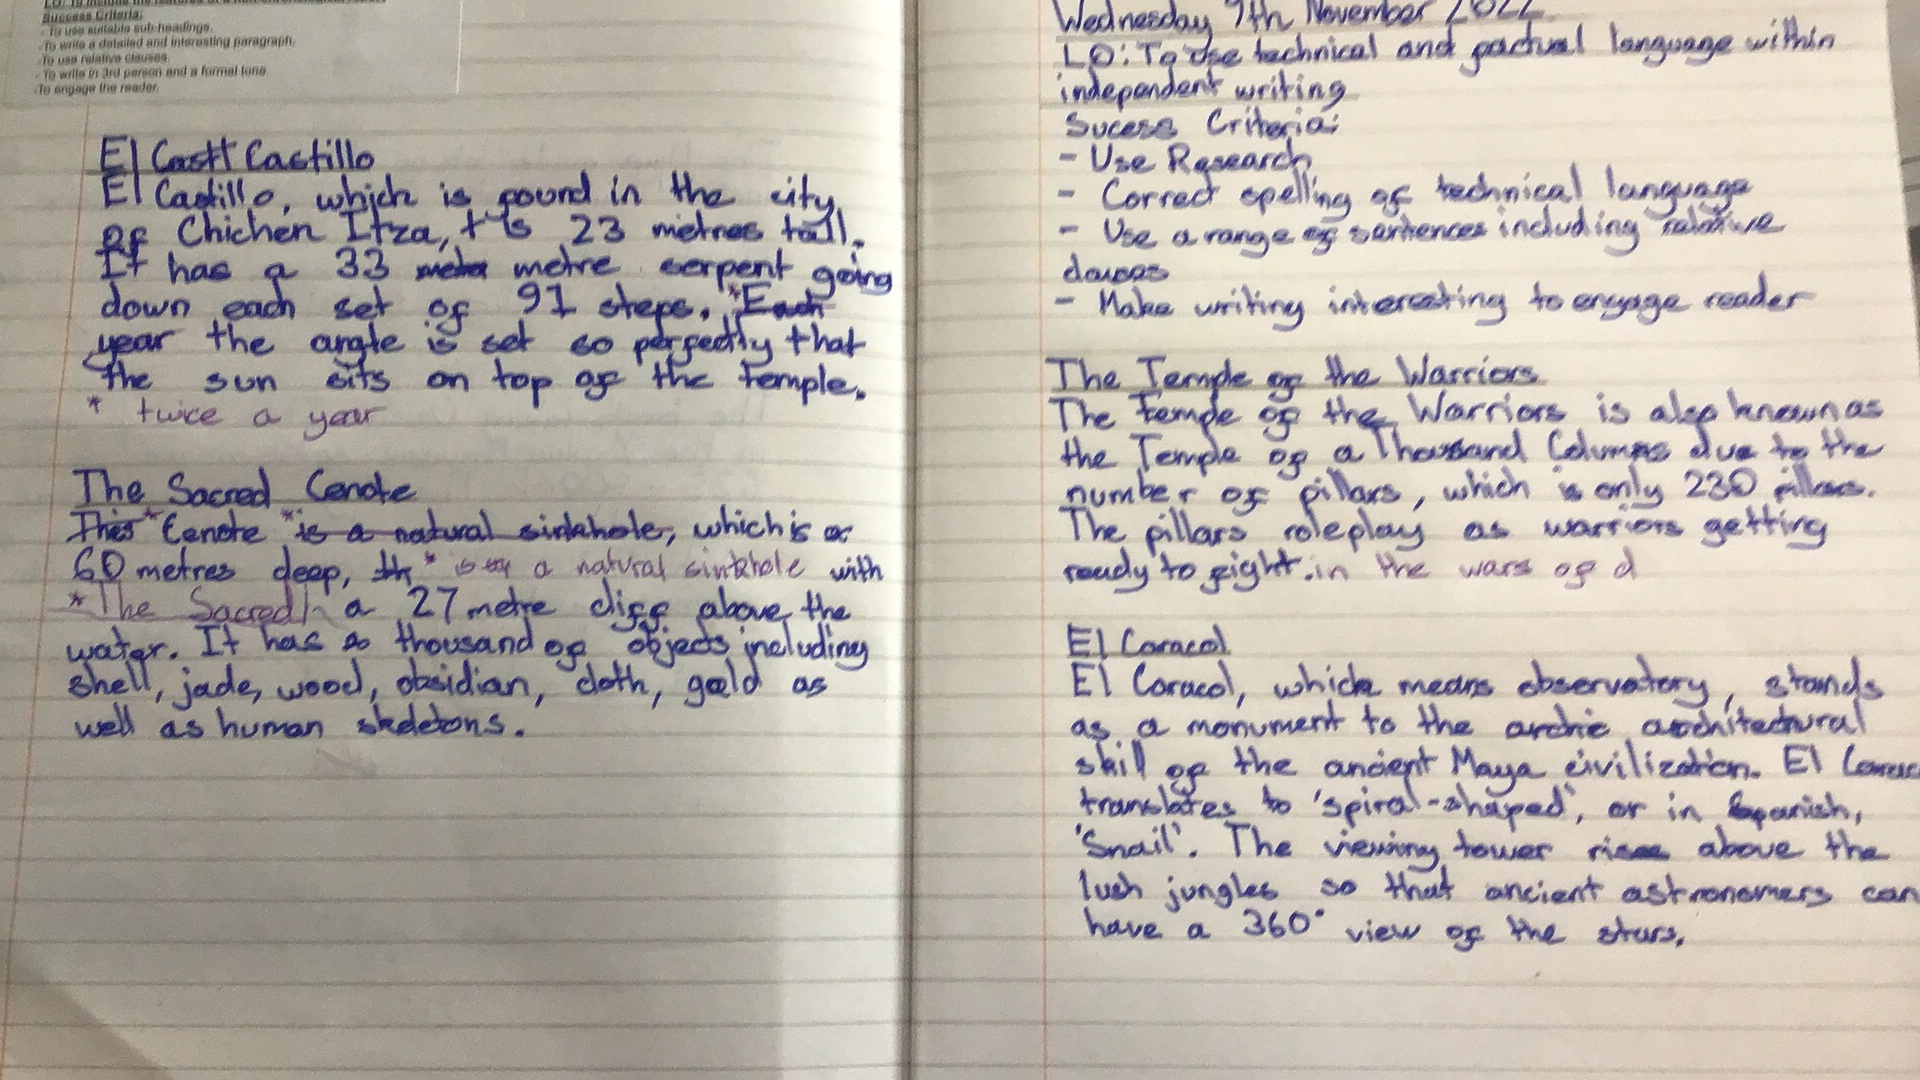 Success Criteria:
- To use suitable sub-headings.
-To write a detailed and interesting paragraph.
-To use relative clauses.
- To write in 3rd person and a formal tone.
-To engage the reader.
El Castt Castillo
El Castillo, which is found in the city
of Chichen Itza, is 23 metres tall.
It has a 33 metre serpent going
down each set of 91 steps. *Each
year the angle is set so perfectly that
the sun sits on top of the temple.
* twice a year
The Sacred Cenote
This* Cenote *is a natural sinkhole, which is
60 metres deep, * a natural sinkhole with
*The Sacred a 27 metre cliff above the
water. It has thousand of objects including
shell, jade, wood, obsidian, cloth, gold as
well as human skeletons.
Wednesday 9th November 2022
LO: To use technical and factual language within
independent writing
Sucess Criteria:
- Use Research
- Correct spelling of technical language
- Use a range of sentences including relative
clauses
- Make writing interesting to engage reader
The Temple of the Warriors
The Tempe of the Warriors is also known as
the Temple of a Thousand Columns due to the
number of pillars, which is only 230 pillars.
The pillars roleplay as warriors getting
ready to fight. in the wars of d
El Caracol
El Caracol, which means observatory, stands
as a monument to the archie architectural
skill of the ancient Maya civilization. El
translates to 'spiral-shaped', or in Spanish,
'Snail'. The viewing tower rises above the
lush jungles so that ancient astronomers can
have a 360° view of the stars.